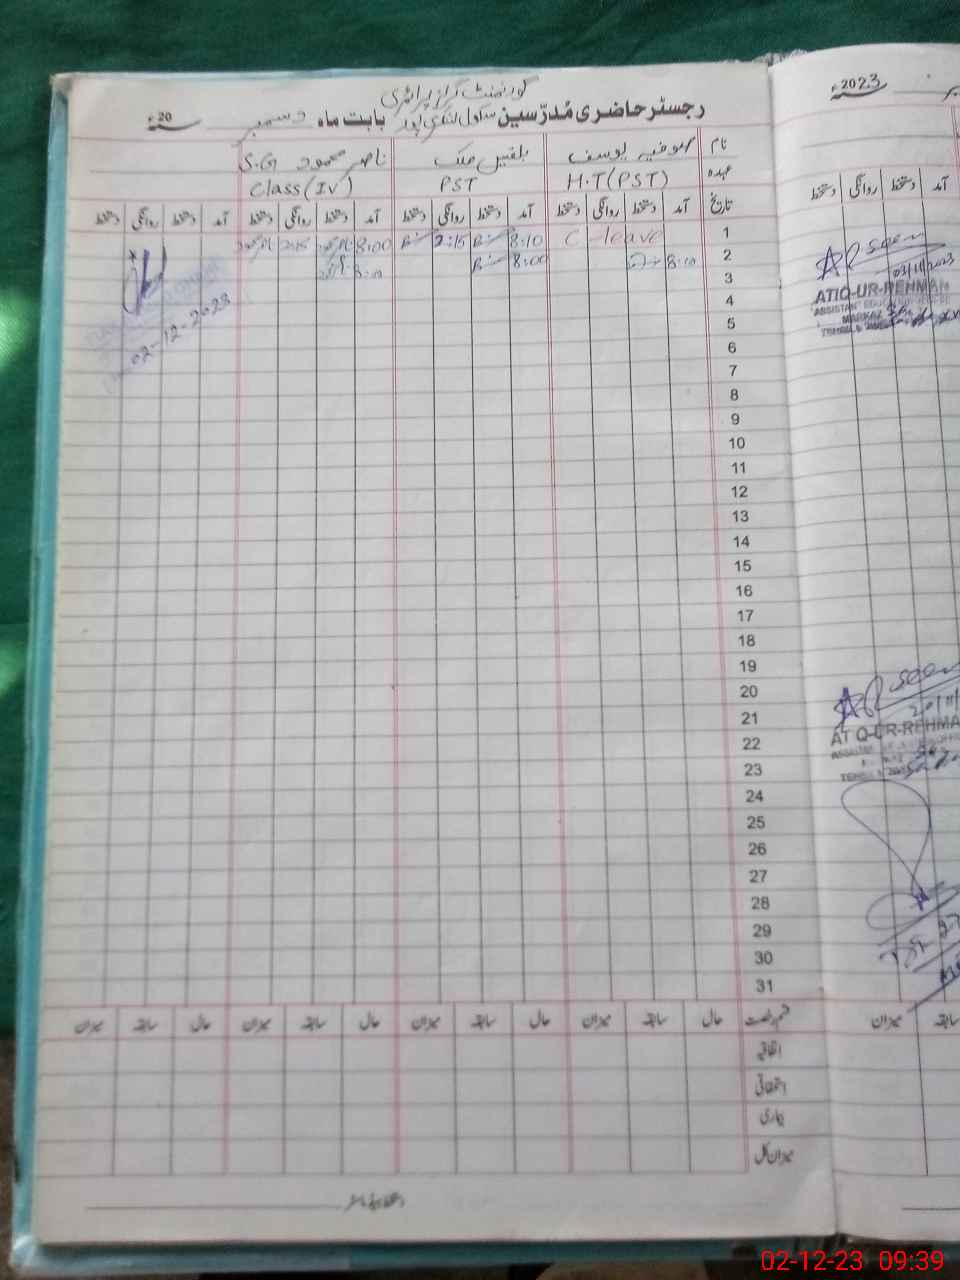 گورنمنٹ گرلز پرائمری
رجسٹر حاضری مُدرّسین سکول بابت ماہ دسمبر 20ء
نام صوفیہ یوسف بلقیس ملک ناصر محمود S.G
عہدہ H.T(PST) PST Class(IV)
تاریخ آمد دستخط روانگی دستخط آمد دستخط روانگی دستخط آمد دستخط روانگی دستخط آمد دستخط روانگی دستخط
1 C-leave 8:10 2:15 8:00 2:15
2 8:00
3
4
5
6
7
8
9
10
11
12
13
14
15
16
17
18
19
20
21
22
23
24
25
26
27
28
29
30
31
02-12-2023
قسم رخصت حال سابقہ میزان حال سابقہ میزان حال سابقہ میزان حال سابقہ میزان
اتفاقیہ
استحقاقی
بیماری
میزان کل
دستخط ہیڈ ماسٹر
2023ء
آمد دستخط روانگی دستخط
seen
03/11/2023
ATIQ-UR-REHMAN
MARKAZ
seen
20/11/
سابقہ میزان
02-12-23 09:39